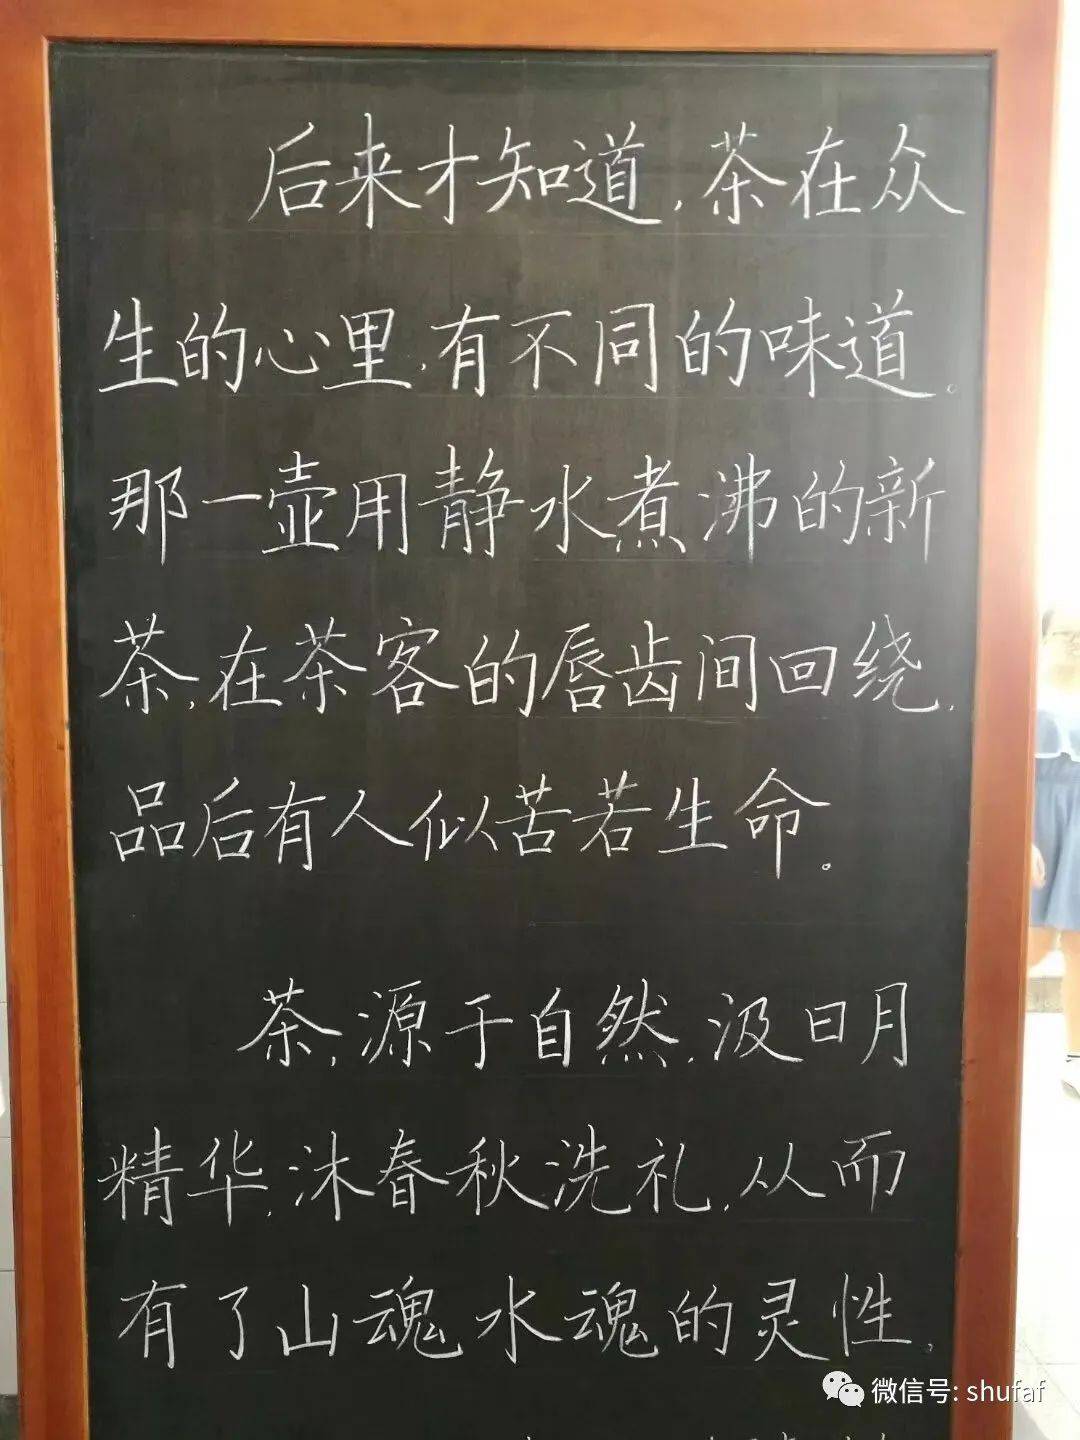 后来才知道,茶在众
生的心里,有不同的味道。
那一壶用静水煮沸的新
茶,在茶客的唇齿间回绕,
品后有人似苦若生命。
茶,源于自然,汲日月
精华,沐春秋洗礼,从而
有了山魂水魂的灵性,
微信号: shufaf